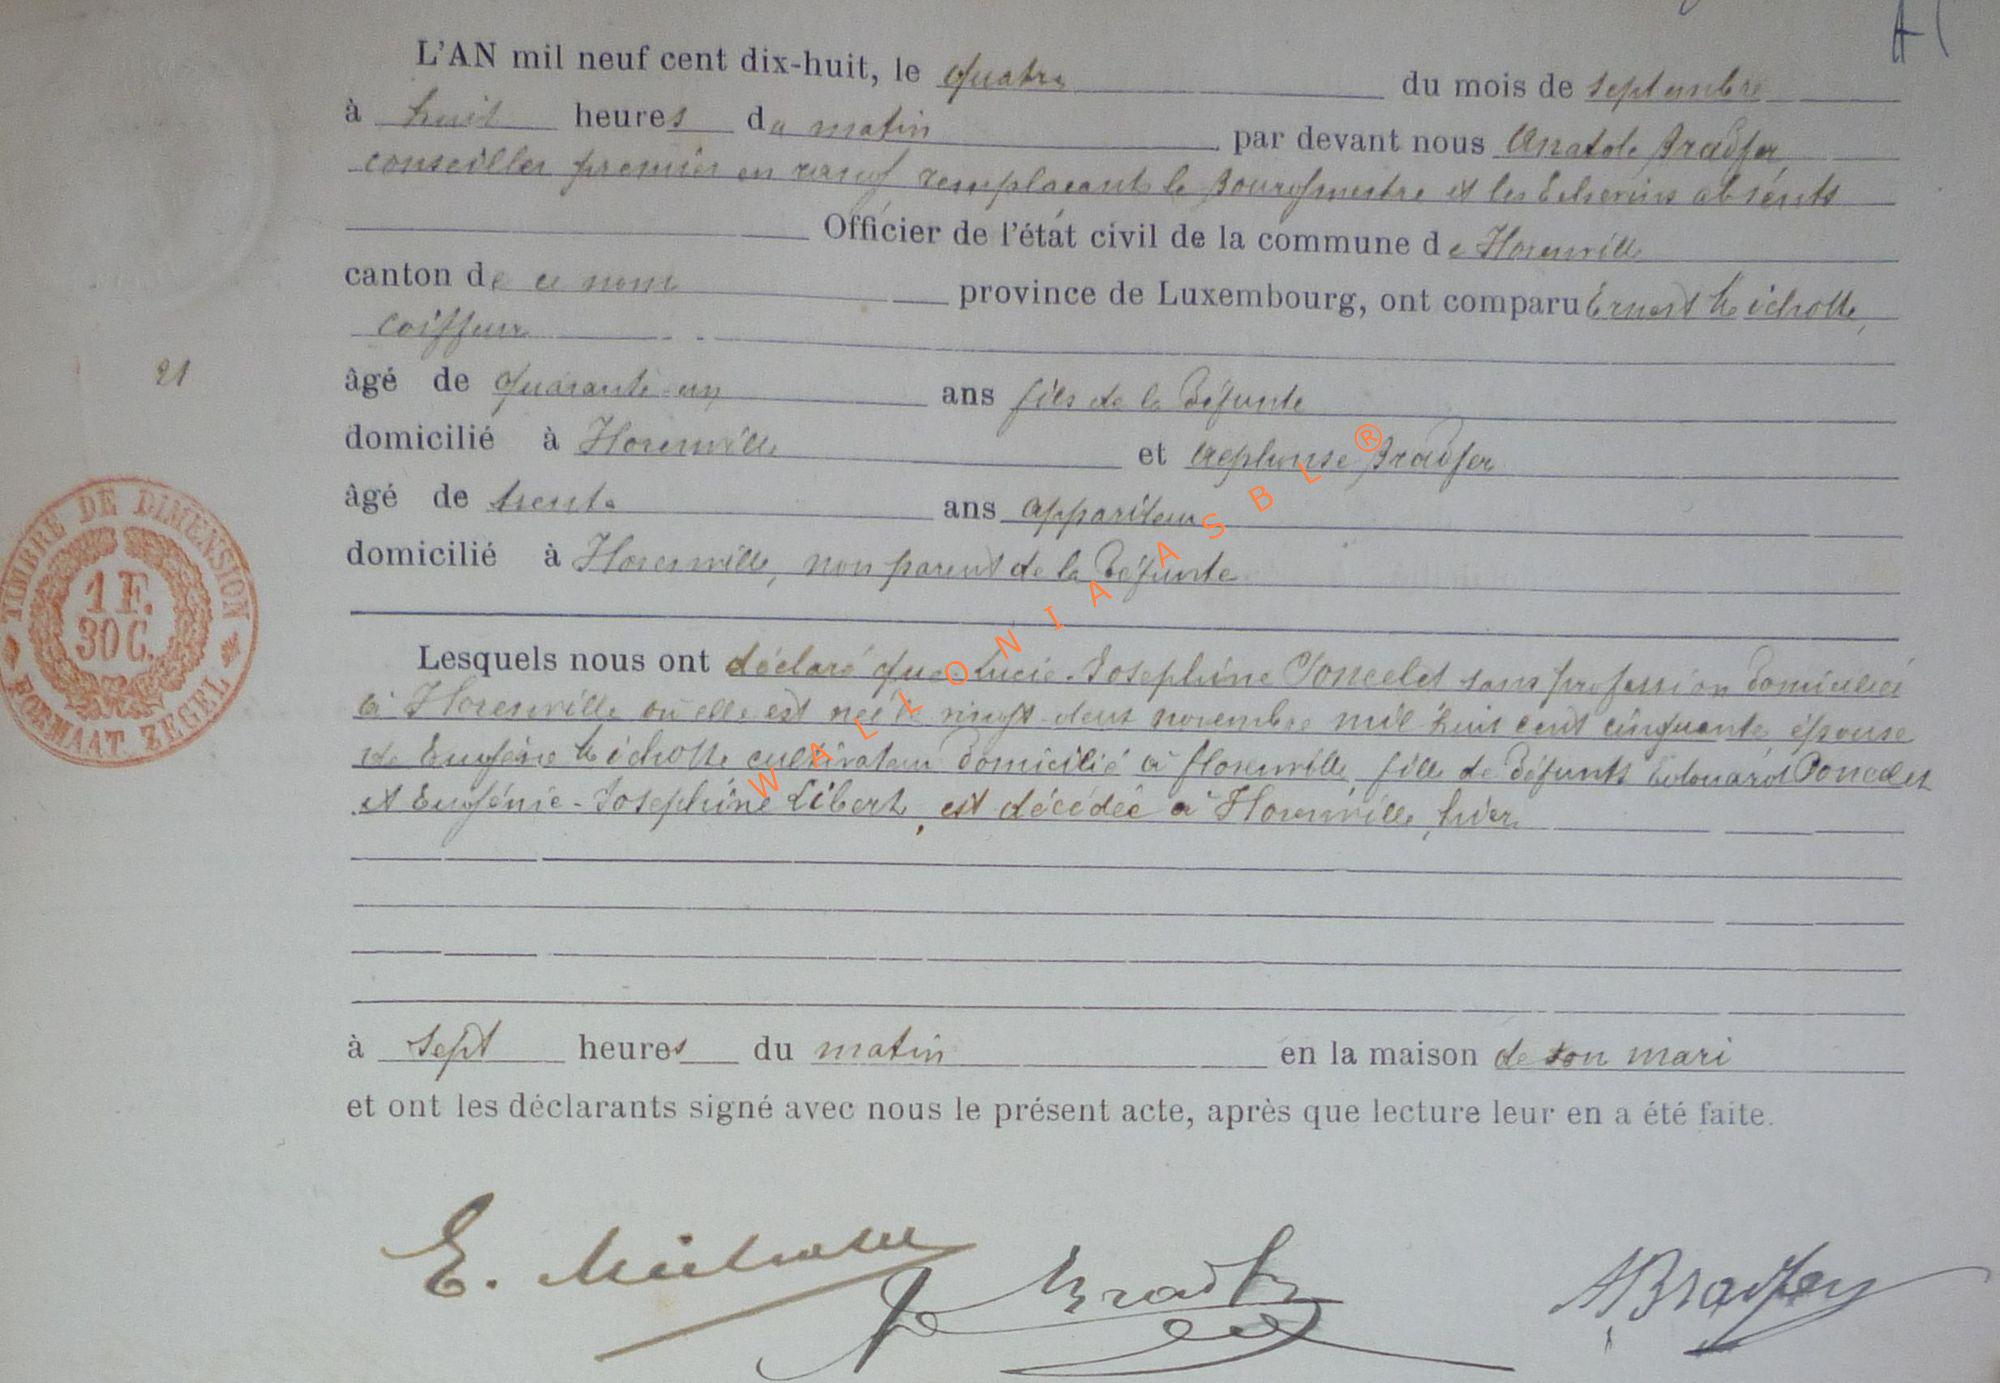 L'AN mil neuf cent dix-huit, le quatre du mois de septembre
à huit heures du matin par devant nous Anatole Bradfer
conseiller premier en rang remplaçant le Bourgmestre et les Echevins absents
Officier de l'état civil de la commune de Florenville
canton de ce nom province de Luxembourg, ont comparu Ernest Michotte,
coiffeur
21
âgé de quarante-un ans fils de la défunte
domicilié à Florenville et Alphonse Bradfer
âgé de trente ans appariteur
domicilié à Florenville, non parent de la défunte
TIMBRE DE DIMENSION
1 F.
30 C.
FORMAAT ZEGEL
Lesquels nous ont déclaré que Lucie-Josephine Poncelet sans profession domiciliée
à Florenville où elle est née le vingt-deux novembre mil huit cent cinquante, épouse
de Eugène Michotte cultivateur domicilié à Florenville, fille de défunts Edouard Poncelet
et Eugénie-Josephine Libert, est décédée à Florenville, hier
à sept heures du matin en la maison de son mari
et ont les déclarants signé avec nous le présent acte, après que lecture leur en a été faite.
E. Michotte Bradfer ABradfer
WALLONIA ASBL ®